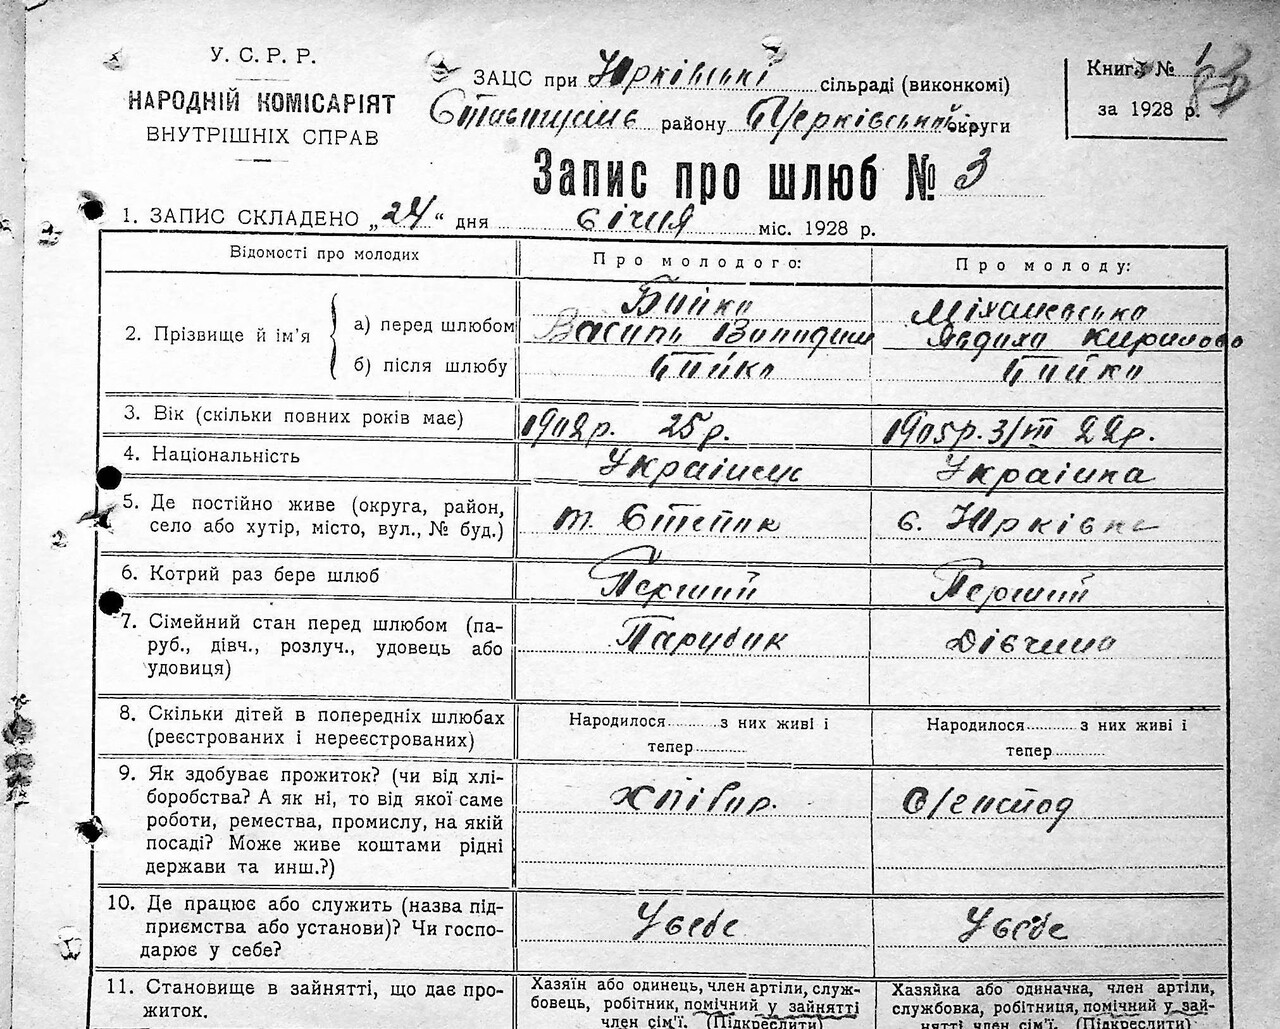 У. С. Р. Р.
НАРОДНІЙ КОМІСАРІЯТ
ВНУТРІШНІХ СПРАВ
ЗАЦС при Юрківські сільраді (виконкомі)
району округи
Книга №
за 1928 р.
Запис про шлюб № 3
1. ЗАПИС СКЛАДЕНО „24“ дня січня міс. 1928 р.
Відомості про молодих Про молодого: Про молоду:
2. Прізвище й ім'я
а) перед шлюбом Бийко
Василь
б) після шлюбу Бийко Бийко
3. Вік (скільки повних років має) 1902 р. 25 р. 1905 р. 3/III 22 р.
4. Національність Українець Українка
5. Де постійно живе (округа, район, село або хутір, місто, вул., № буд.) с. Юрківка
6. Котрий раз бере шлюб Перший Перший
7. Сімейний стан перед шлюбом (па-
руб., дівч., розлуч., удовець або
удовиця) Парубик Дівчина
8. Скільки дітей в попередніх шлюбах
(реєстрованих і нереєстрованих)
Народилося з них живі і
тепер
Народилося з них живі і
тепер
9. Як здобуває прожиток? (чи від хлі-
боробства? А як ні, то від якої саме
роботи, ремества, промислу, на якій
посаді? Може живе коштами рідні
держави та инш.?)
Хлібор.
10. Де працює або служить (назва під-
приємства або установи)? Чи госпо-
дарює у себе?
У себе У себе
11. Становище в зайнятті, що дає про-
житок.
Хазяїн або одинець, член артіли, служ-
бовець, робітник, помічний у зайнятті
член сім'ї. (Підкреслити)
Хазяйка або одиначка, член артіли,
службовка, робітниця, помічний у зай-
нятті член сім'ї. (Підкреслити)